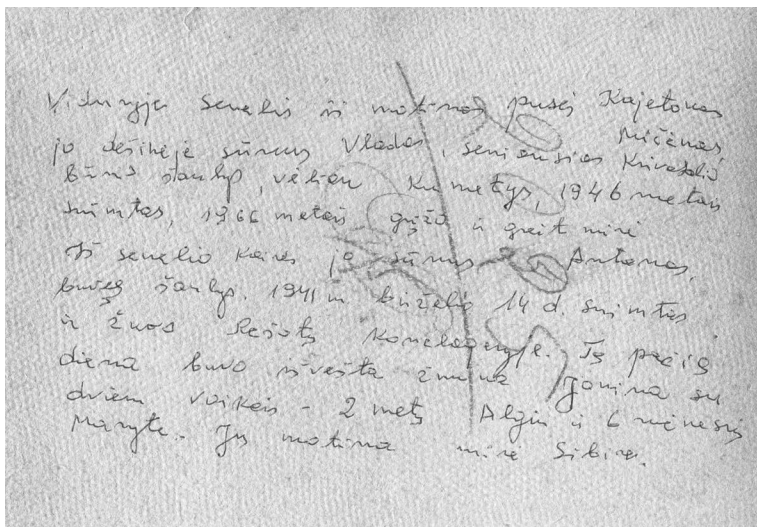 Viduryje senelis iš motinos pusės Kajetonas Mičėnas,
jo dešinėje sūnus Vladas, seniausias
buvo šaulys, vėliau 1946 metais
suimtas, 1966 metais grįžo ir greit mirė
Iš senelio kairės jo sūnus Antanas,
buvęs šaulys. 1941 m birželio 14 d. suimtas
ir žuvo Rešotų konclageryje. Tą pačią
diena buvo išvežta žmona Janina su
dviem vaikais - 2 metų Algiu ir 6 mėnesių
Maryte. Jų motina mirė Sibire.